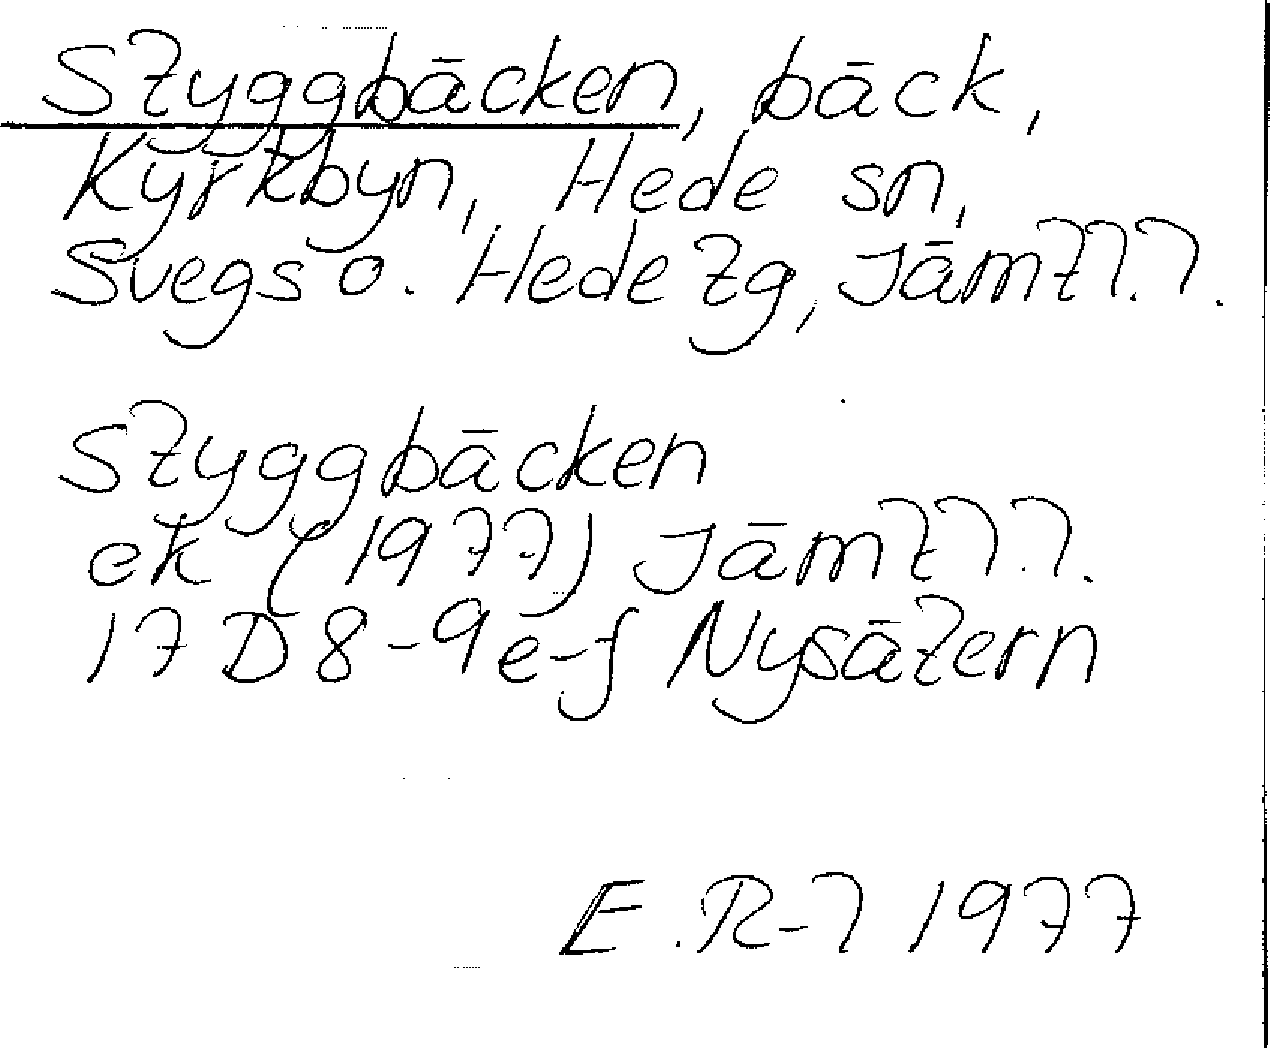 Styggbäcken, bäck,
Kyrkbyn, Hede sn,
Svegs o. Hede tg, Jämtl.l.
Styggbäcken
ek (1977) Jämtl.l.
17 D 8-9 e-f Nysätern
E.R-l 1977